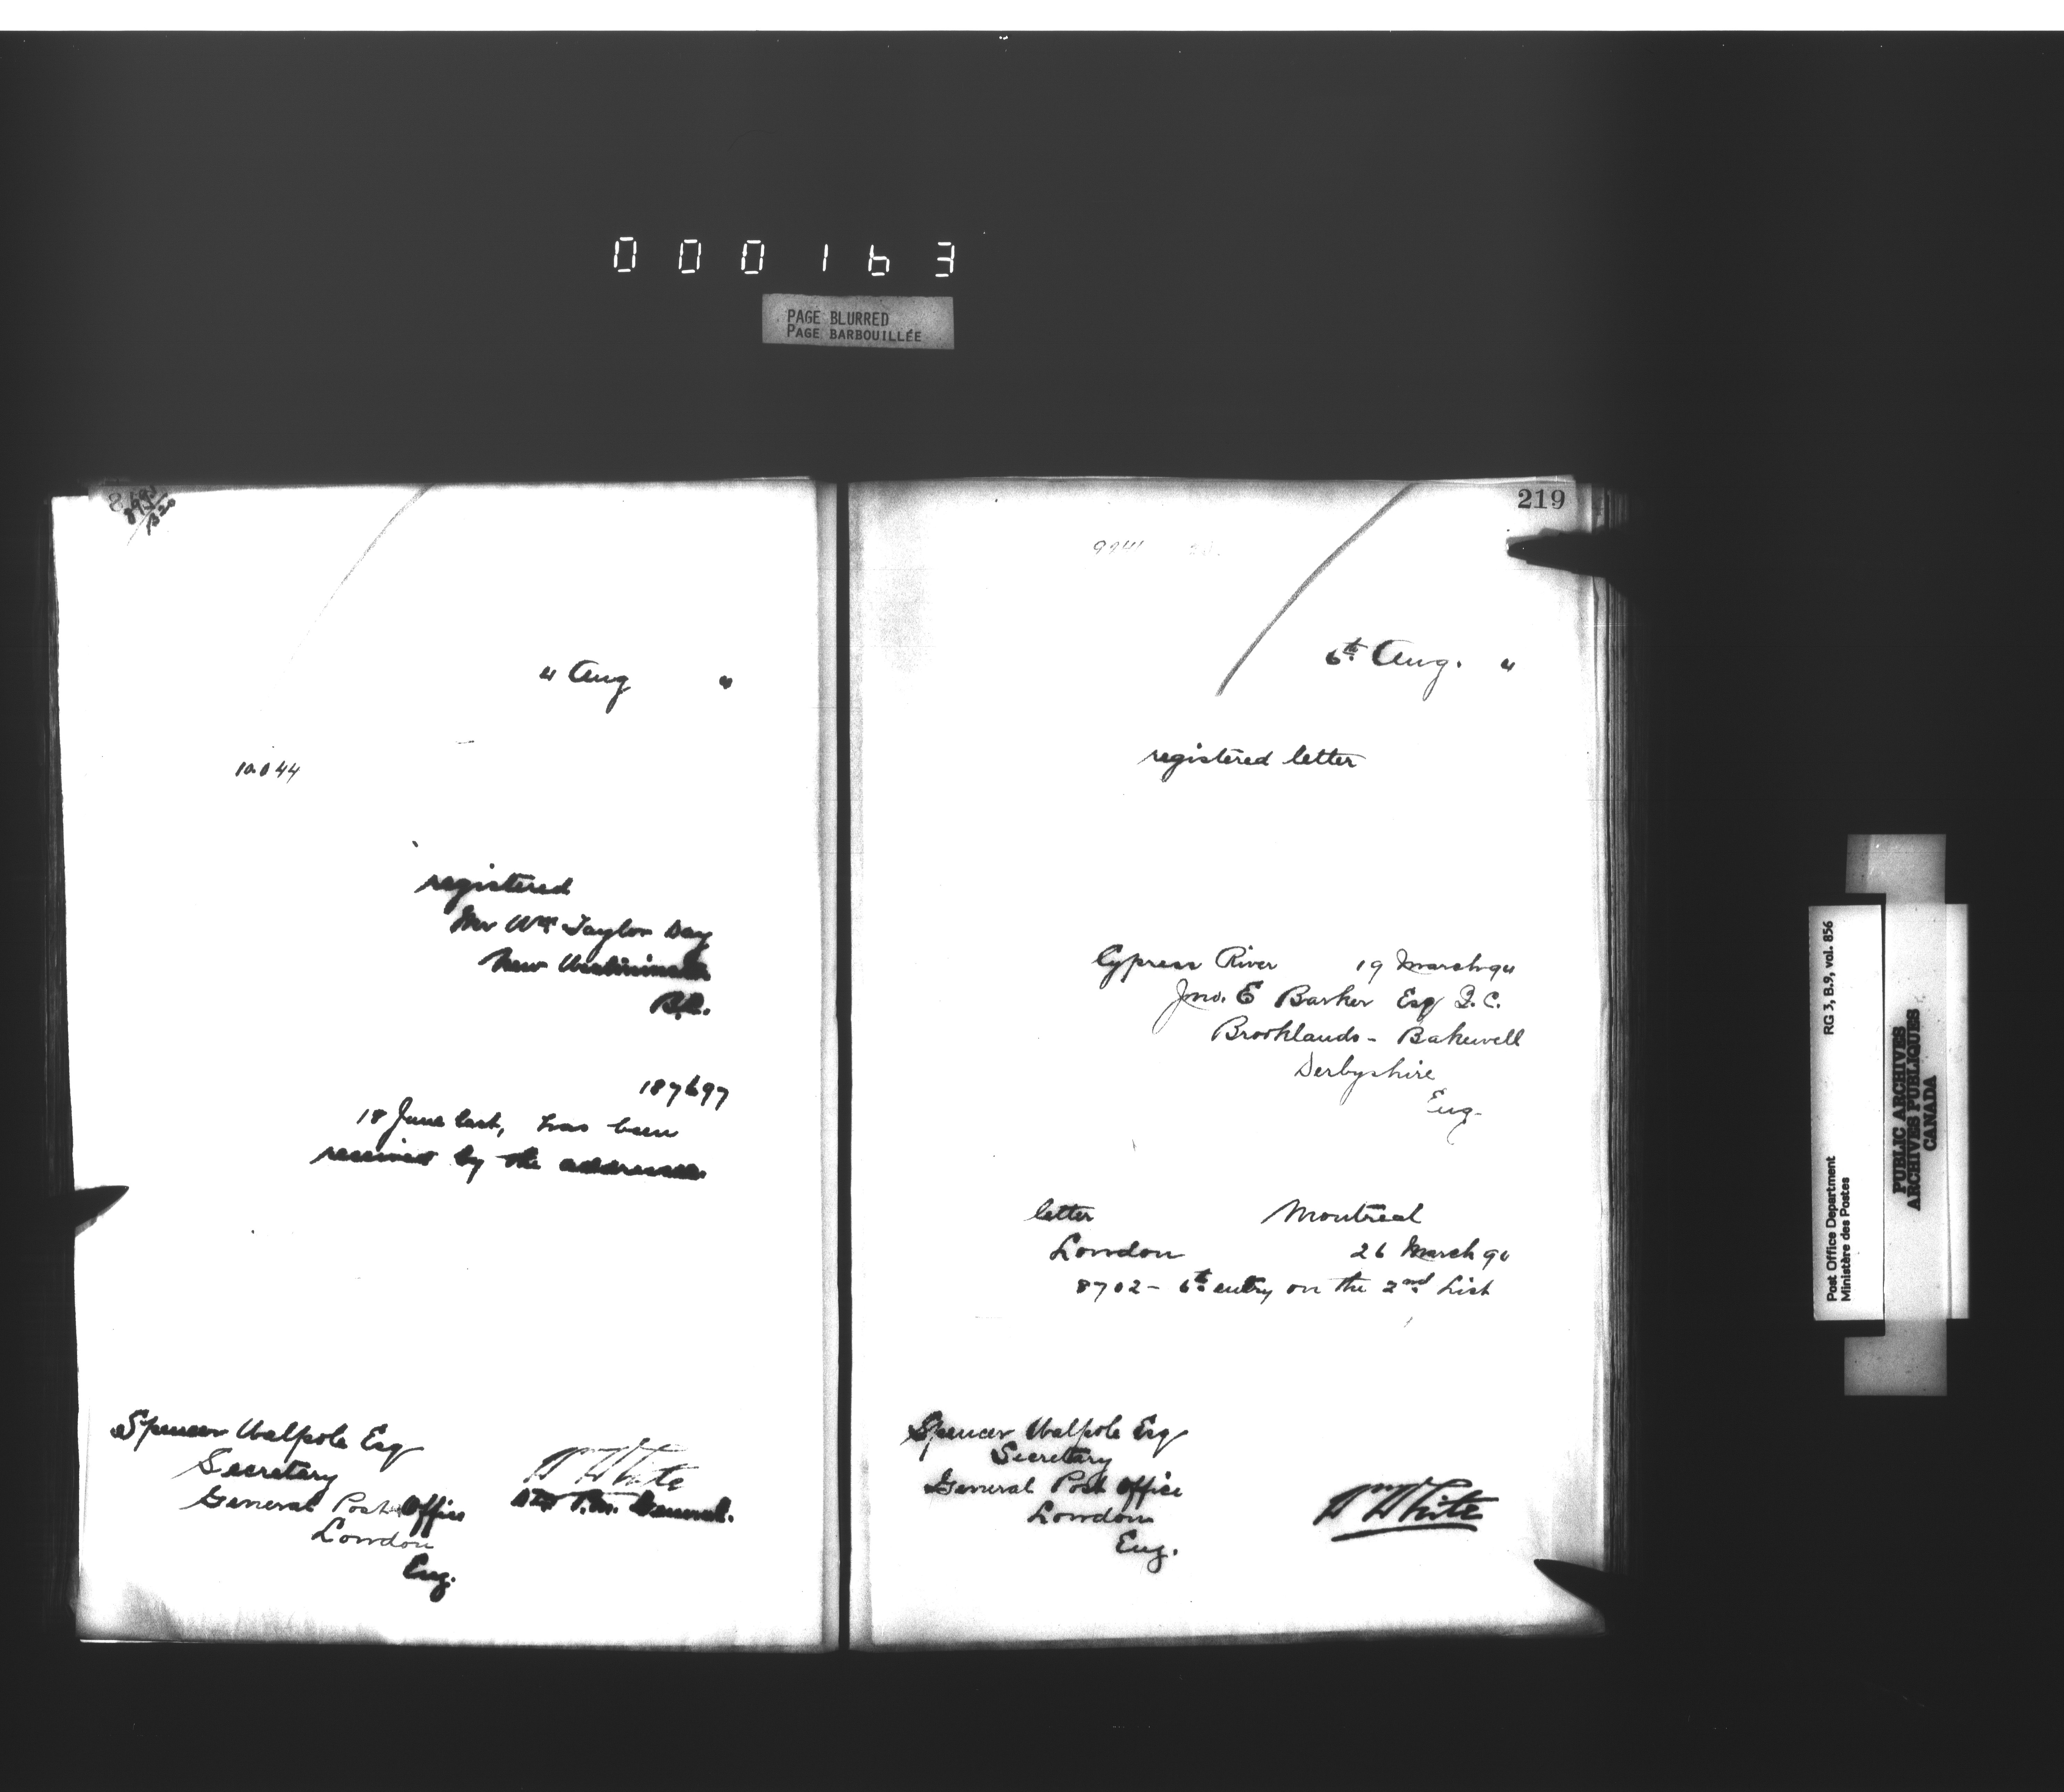 000163
PAGE BLURRED
PAGE BARBOUILLÉE
" Aug "
10.044
registered
Mr Wm Taylor Day
New Westminster
B.C.
187697
18 June last, has been
received by the addressee.
Spencer Walpole Esq
Secretary
General Post Office
London
Eng.
Wm White
219
6th Aug. "
registered letter
Cypress River 19 March 94
Jno. E Barker Esq Q.C.
Brooklands - Bakewell
Derbyshire
Eng.
letter Montreal
London 26 March 94
8702 - 6th entry on the 2nd List
Spencer Walpole Esq
Secretary
General Post Office
London
Eng.
Wm White
RG 3, B.9, vol. 856
Post Office Department
Ministère des Postes
PUBLIC ARCHIVES
ARCHIVES PUBLIQUES
CANADA